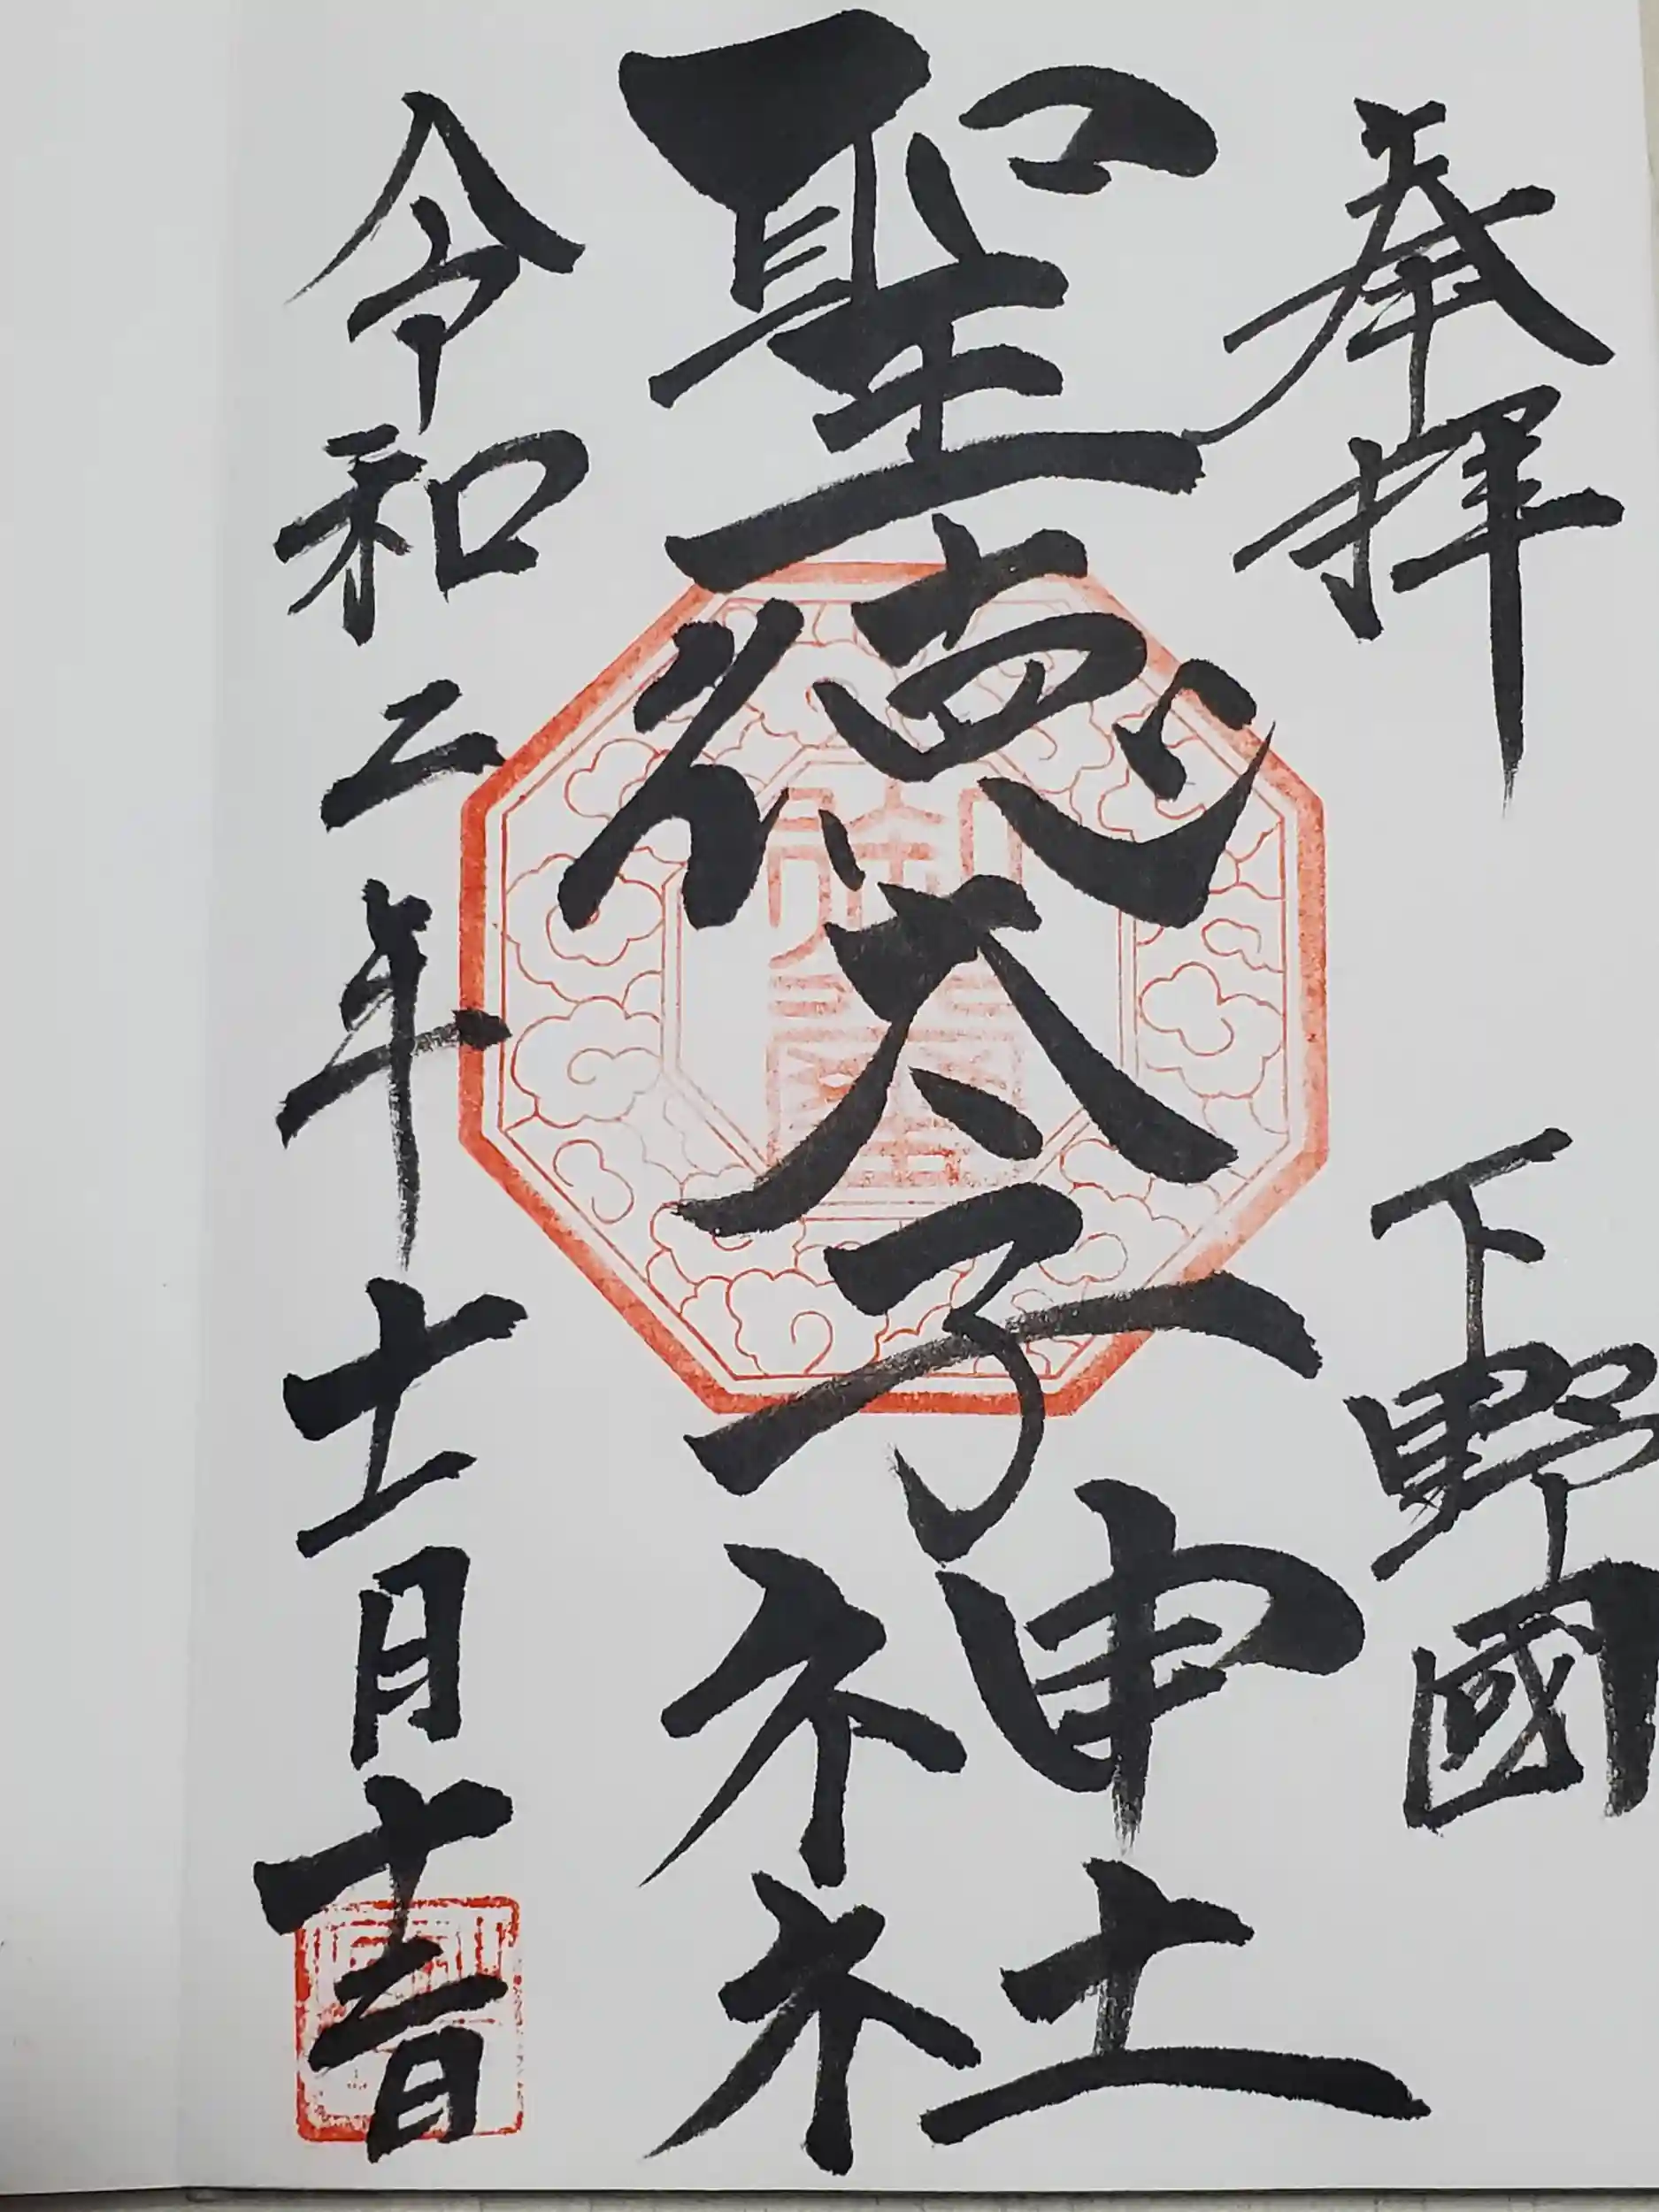 奉拝
下野國
聖徳太子神社
令和二年十一月十二日